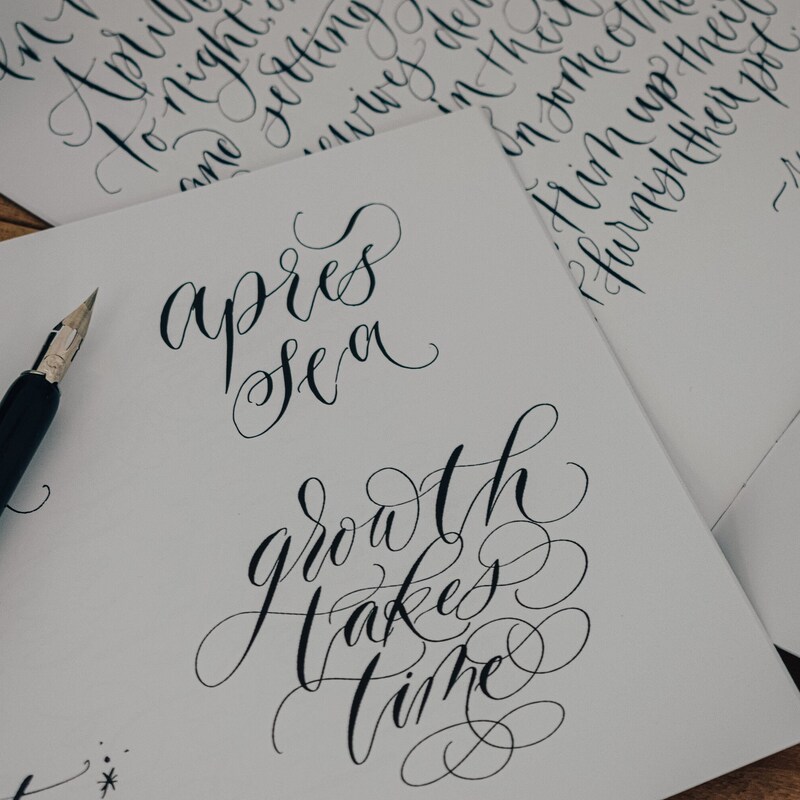 In
April
to night,
and setting
and
in their
on some
trim up their
furnish their pot
après
sea
growth
takes
time